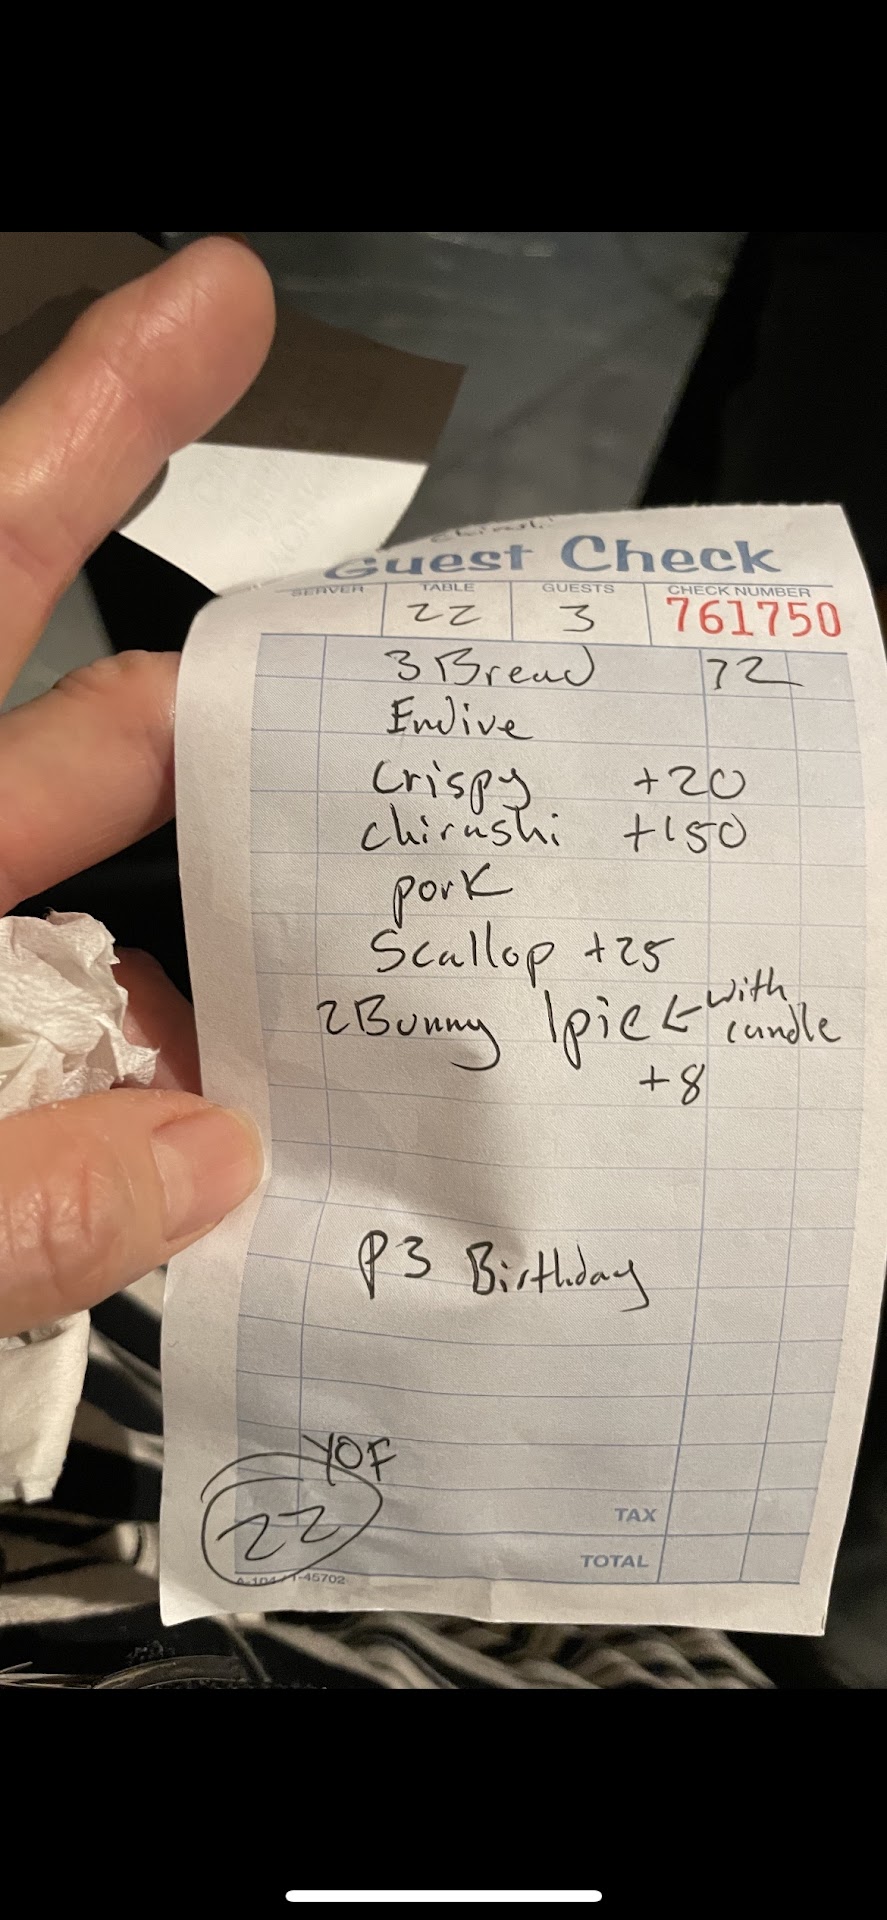 Guest Check
SERVER TABLE GUESTS CHECK NUMBER
22 3 761750
3 Bread 72
Endive
Crispy +20
chirashi +150
pork
Scallop +25
2 Bunny 1 pie ← with candle
+8
P3 Birthday
YOF
22
TAX
TOTAL